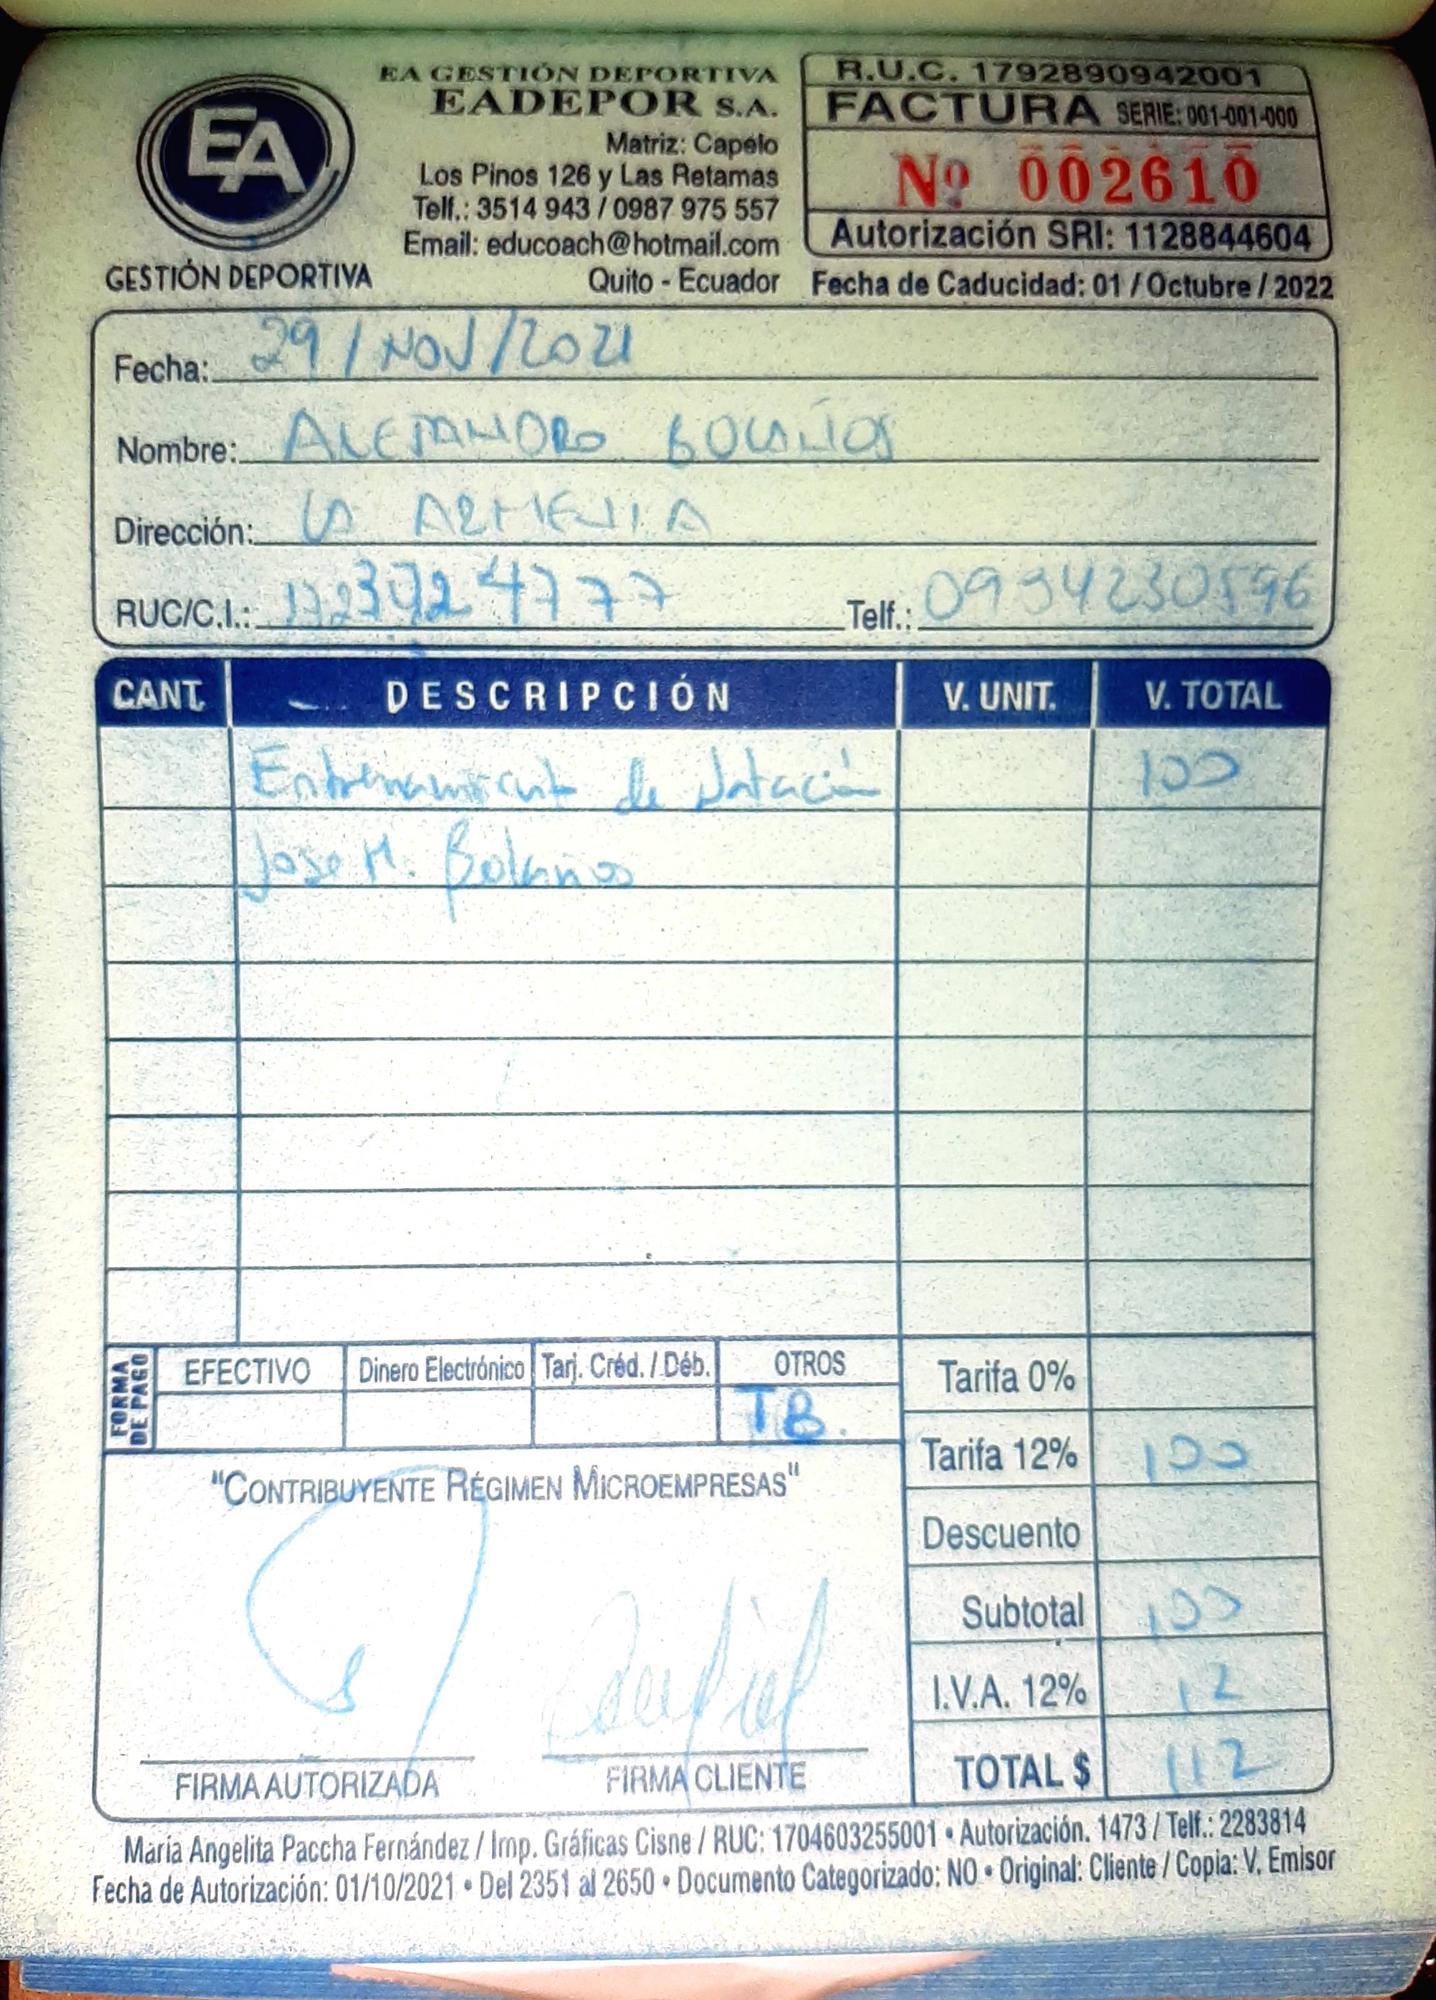 EA
GESTIÓN DEPORTIVA
EA GESTIÓN DEPORTIVA
EADEPOR S.A.
Matriz: Capelo
Los Pinos 126 y Las Retamas
Telf.: 3514 943 / 0987 975 557
Email: educoach@hotmail.com
Quito - Ecuador
R.U.C. 1792890942001
FACTURA SERIE: 001-001-000
Nº 002610
Autorización SRI: 1128844604
Fecha de Caducidad: 01 / Octubre / 2022
Fecha: 29/NOV/2021
Nombre: ALEJANDRO BOLAÑOS
Dirección: LA ARMENIA
RUC/C.I.: 1723924777 Telf.: 0994230596
CANT. DESCRIPCIÓN V. UNIT. V. TOTAL
Entrenamiento de Natación 100
Jose M. Bolaños
FORMA DE PAGO EFECTIVO Dinero Electrónico Tarj. Créd. / Déb. OTROS
TB.
Tarifa 0%
Tarifa 12% 100
Descuento
Subtotal 100
I.V.A. 12% 12
TOTAL $ 112
"CONTRIBUYENTE RÉGIMEN MICROEMPRESAS"
FIRMA AUTORIZADA FIRMA CLIENTE
María Angelita Paccha Fernández / Imp. Gráficas Cisne / RUC: 1704603255001 • Autorización. 1473 / Telf.: 2283814
Fecha de Autorización: 01/10/2021 • Del 2351 al 2650 • Documento Categorizado: NO • Original: Cliente / Copia: V. Emisor